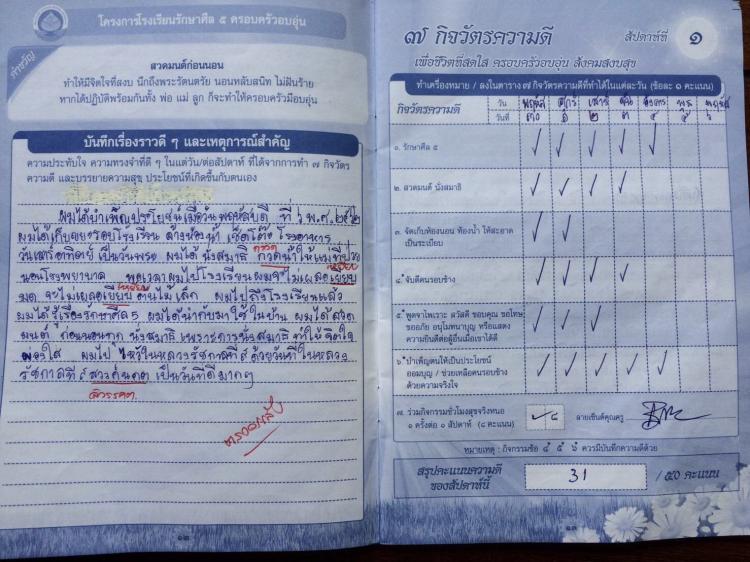 โครงการโรงเรียนรักษาศีล ๕ ครอบครัวอบอุ่น
คำขวัญ
สวดมนต์ก่อนนอน
ทำให้มีจิตใจที่สงบ นึกถึงพระรัตนตรัย นอนหลับสนิท ไม่ฝันร้าย
หากได้ปฏิบัติพร้อมกันทั้ง พ่อ แม่ ลูก ก็จะทำให้ครอบครัวมีอบอุ่น
บันทึกเรื่องราวดี ๆ และเหตุการณ์สำคัญ
ความประทับใจ ความทรงจำที่ดี ๆ ในแต่ละวัน/ต่อสัปดาห์ ที่ได้จากการทำ ๗ กิจวัตร
ความดี และบรรยายความสุข ประโยชน์ที่เกิดขึ้นกับตนเอง
ผมได้บำเพ็ญประโยชน์เมื่อวันพฤหัสบดี ที่ พ.ศ.
ผมได้เก็บขยะรอบโรงเรียน ล้างห้องน้ำ เช็ดโต๊ะ โรงอาหาร
วันเสาร์อาทิตย์ เป็นวันพระ ผมได้นั่งสมาธิ กวดน้ำให้แม่ที่ป่วย
กรวด
นอนโรงพยาบาล พอเวลาผมไปโรงเรียนผมจะไม่เผลอเยียบ
เหยียบ
มด จะไม่เผลอเยียบต้นไม้เล็ก ผมไปถึงโรงเรียนแล้ว
เหยียบ
ผมได้รู้เรื่องรักษาศีล 5 ผมได้นำกับมาใช้ในบ้าน ผมได้สวด
มนต์ ก่อนนอนทุก นั่งสมาธิ เพราะการนั่งสมาธิ ทำให้จิตใจ
ผ่องใส ผมไป ไหว้ในหลวงรัชกาลที่๙ ด้วยวันที่ในหลวง
รัชกาลที่๙ สวงคุนคต เป็นวันที่ดีมากๆ
สวรรคต
ตรวจแล้ว
๑๒
๗ กิจวัตรความดี
สัปดาห์ที่ ๑
เพื่อชีวิตที่สดใส ครอบครัวอบอุ่น สังคมสงบสุข
ทำเครื่องหมาย / ลงในตาราง ๗ กิจวัตรความดีที่ทำได้ในแต่ละวัน (ข้อละ ๑ คะแนน)
กิจวัตรความดี วัน พฤหัส ศุกร์ เสาร์ อังคาร พุธ พฤหัส
วันที่ ๓๐ ๑ ๒ ๓
๑. รักษาศีล ๕ / / / / /
๒. สวดมนต์ นั่งสมาธิ / / / /
๓. จัดเก็บห้องนอน ห้องน้ำ ให้สะอาด / /
เป็นระเบียบ
๔. จับดีคนรอบข้าง / / / /
๕. พูดจาไพเราะ สวัสดี ขอบคุณ ขอโทษ / / /
ขออภัย อนุโมทนาบุญ หรือแสดง
ความยินดีต่อผู้อื่นเมื่อเขาได้ดี
๖. บำเพ็ญตนให้เป็นประโยชน์ / / / / /
ออมบุญ / ช่วยเหลือคนรอบข้าง
ด้วยความจริงใจ
๗. ร่วมกิจกรรมชั่วโมงสุขจริงหนอ / ๘ ลายเซ็นต์คุณครู
๑ ครั้งต่อ ๑ สัปดาห์ (๘ คะแนน)
หมายเหตุ : กิจกรรมข้อ ๔ ๕ ๖ ควรมีบันทึกความดีด้วย
สรุปคะแนนความดี
ของสัปดาห์นี้ 31 / ๕๐ คะแนน
๑๓